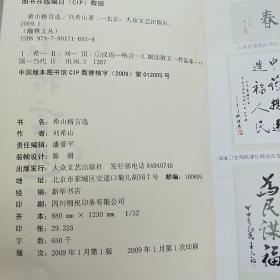 图书在版编目（CIP）数据
希山格言选／刘希山著．—北京：大众文艺出版社，
2009.1
（瀚雅文丛）
ISBN 978-7-80171-693-4
中国版本图书馆CIP数据核字（2009）第012005号
书 名：希山格言选
作 者：刘希山
责任编辑：潘爱平
装帧设计：陈 蔚
出版发行：大众文艺出版社 发行部电话 84040746
地 址：北京市东城区交道口菊儿胡同7号 邮编：100009
经 销：新华书店
印 刷：四川锦祝印务有限公司
开 本：880 mm × 1230 mm 1/32
印 张：29.5
字 数：650千
版 次：2009年1月第1版 2009年1月第1次印刷
春
中药
造福人民
为民谋福